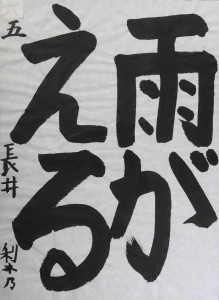 雨が
える
五 長井 利